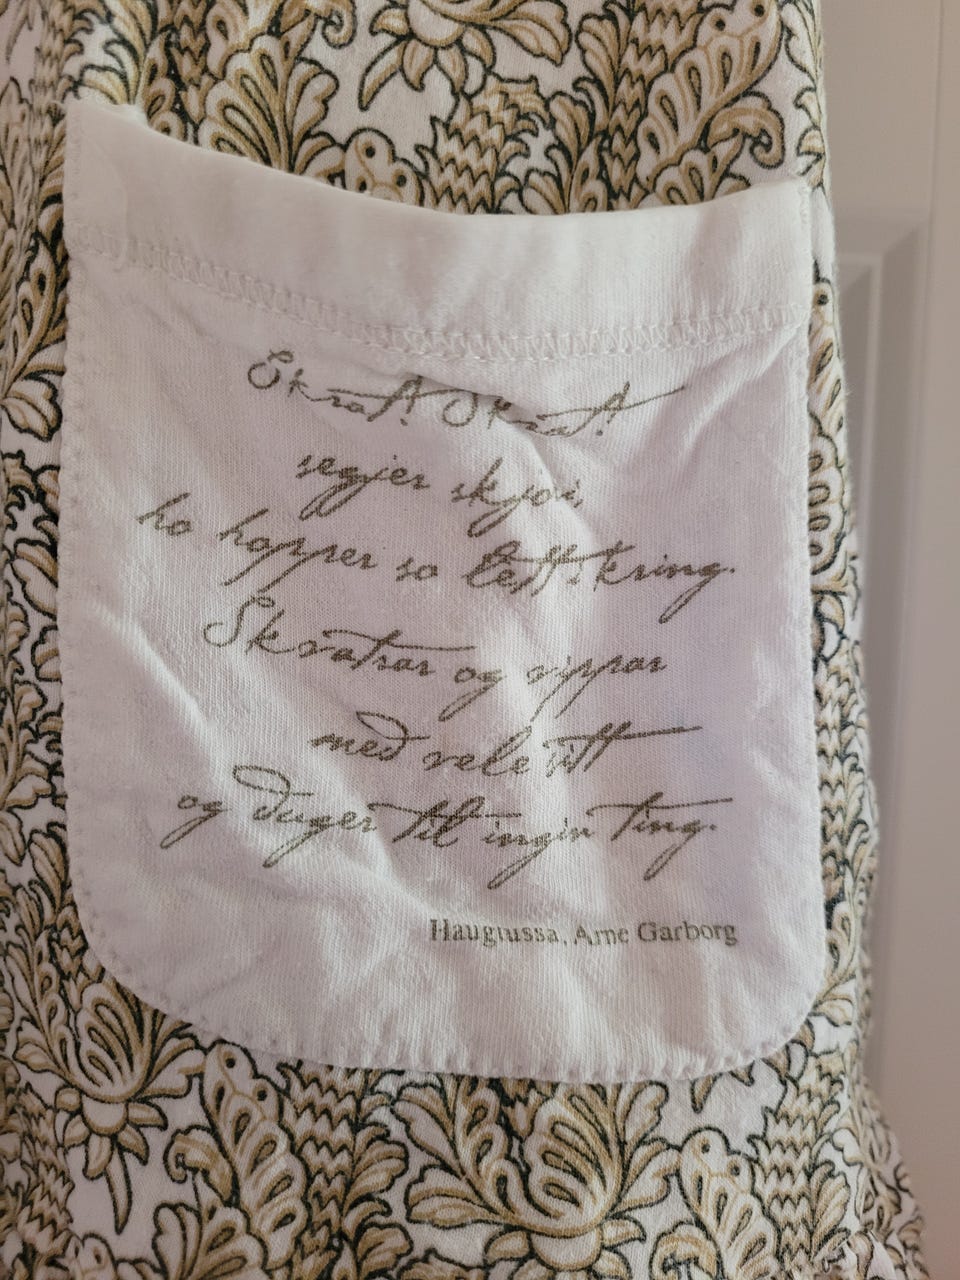 Skrat! Skrat!
segjer skjori,
ho hopper so lett i kring.
Skvatrar og vippar
med vele sitt
og duger til ingin ting.
Haugtussa, Arne Garborg